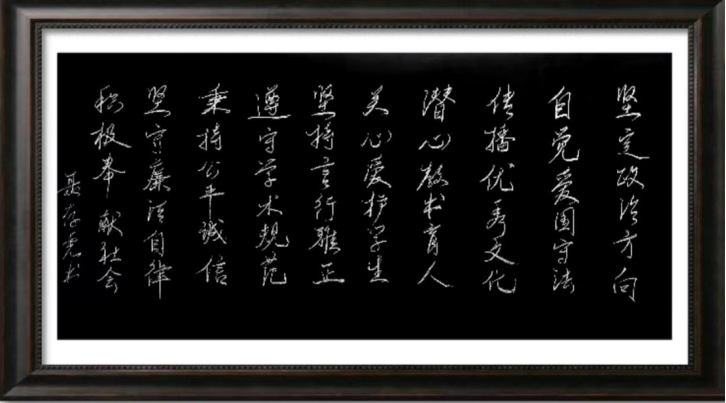 坚定政治方向
自觉爱国守法
传播优秀文化
潜心教书育人
关心爱护学生
坚持言行雅正
遵守学术规范
秉持公平诚信
坚守廉洁自律
积极奉献社会